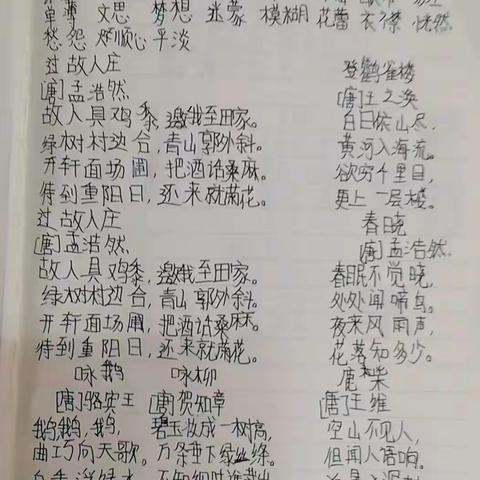 单薄 文思 梦想 迷蒙 模糊 花蕾 衣襟 恍然
愁怨 顺心 平淡
过故人庄
[唐]孟浩然
故人具鸡黍,邀我至田家。
绿树村边合,青山郭外斜。
开轩面场圃,把酒话桑麻。
待到重阳日,还来就菊花。
过故人庄
[唐]孟浩然
故人具鸡黍,邀我至田家。
绿树村边合,青山郭外斜。
开轩面场圃,把酒话桑麻。
待到重阳日,还来就菊花。
咏鹅
[唐]骆宾王
鹅,鹅,鹅,
曲项向天歌。
白毛浮绿水
咏柳
[唐]贺知章
碧玉妆成一树高,
万条垂下绿丝绦。
不知细叶谁裁出
登鹳雀楼
[唐]王之涣
白日依山尽,
黄河入海流。
欲穷千里目,
更上一层楼。
春晓
[唐]孟浩然
春眠不觉晓,
处处闻啼鸟。
夜来风雨声,
花落知多少。
鹿柴
[唐]王维
空山不见人,
但闻人语响。